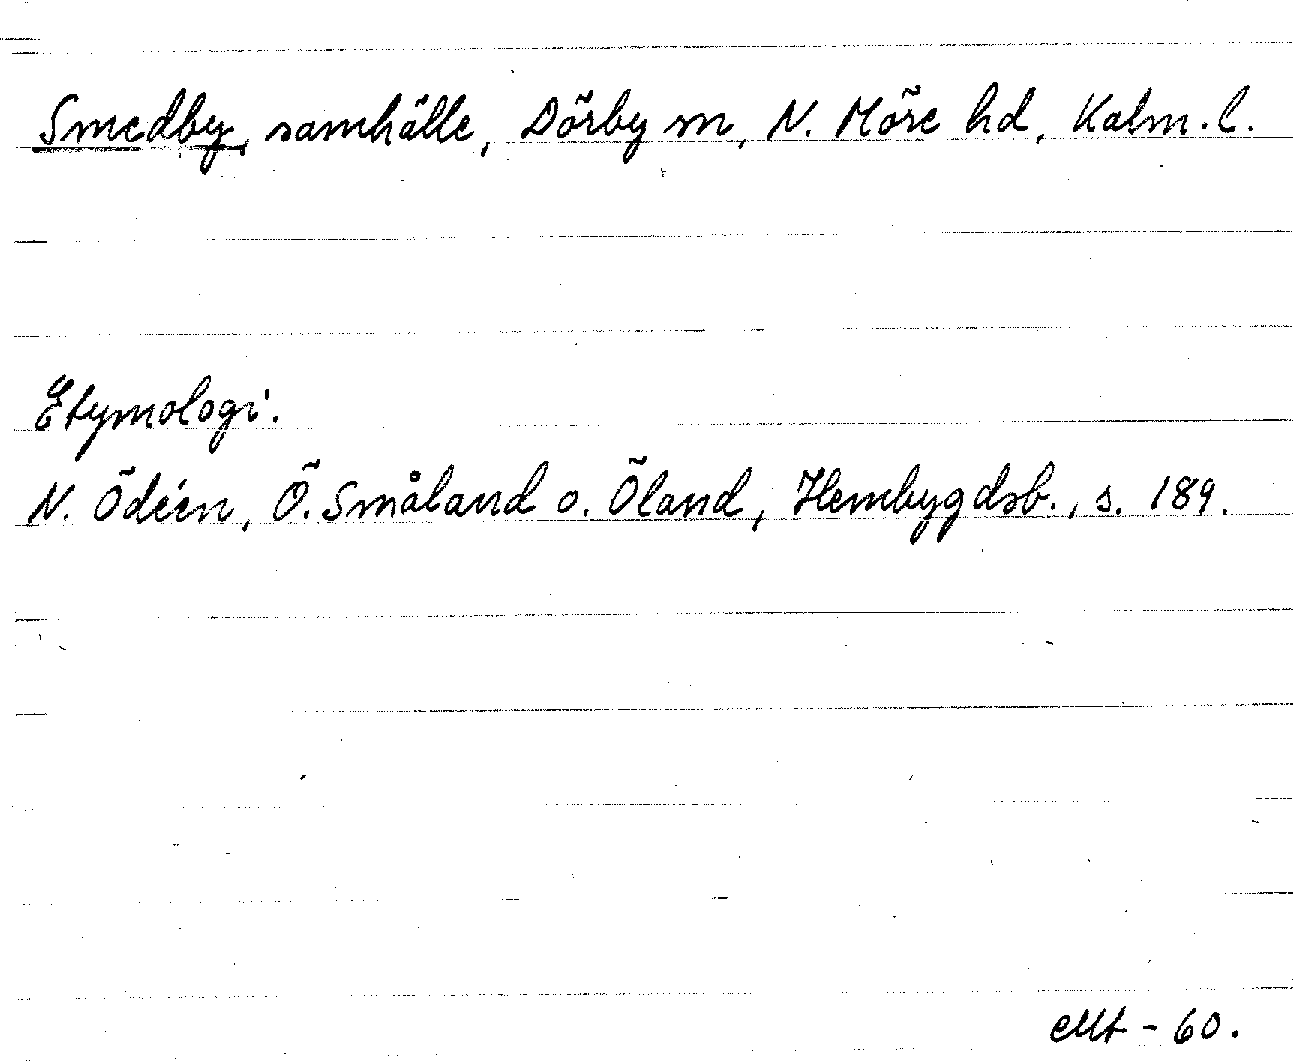 Smedby, samhälle, Dörby sn, N. Möre hd, Kalm. l.
Etymologi.
N. Ödéen, Ö. Småland o. Öland, Hembygdsb., s. 189.
- 60.